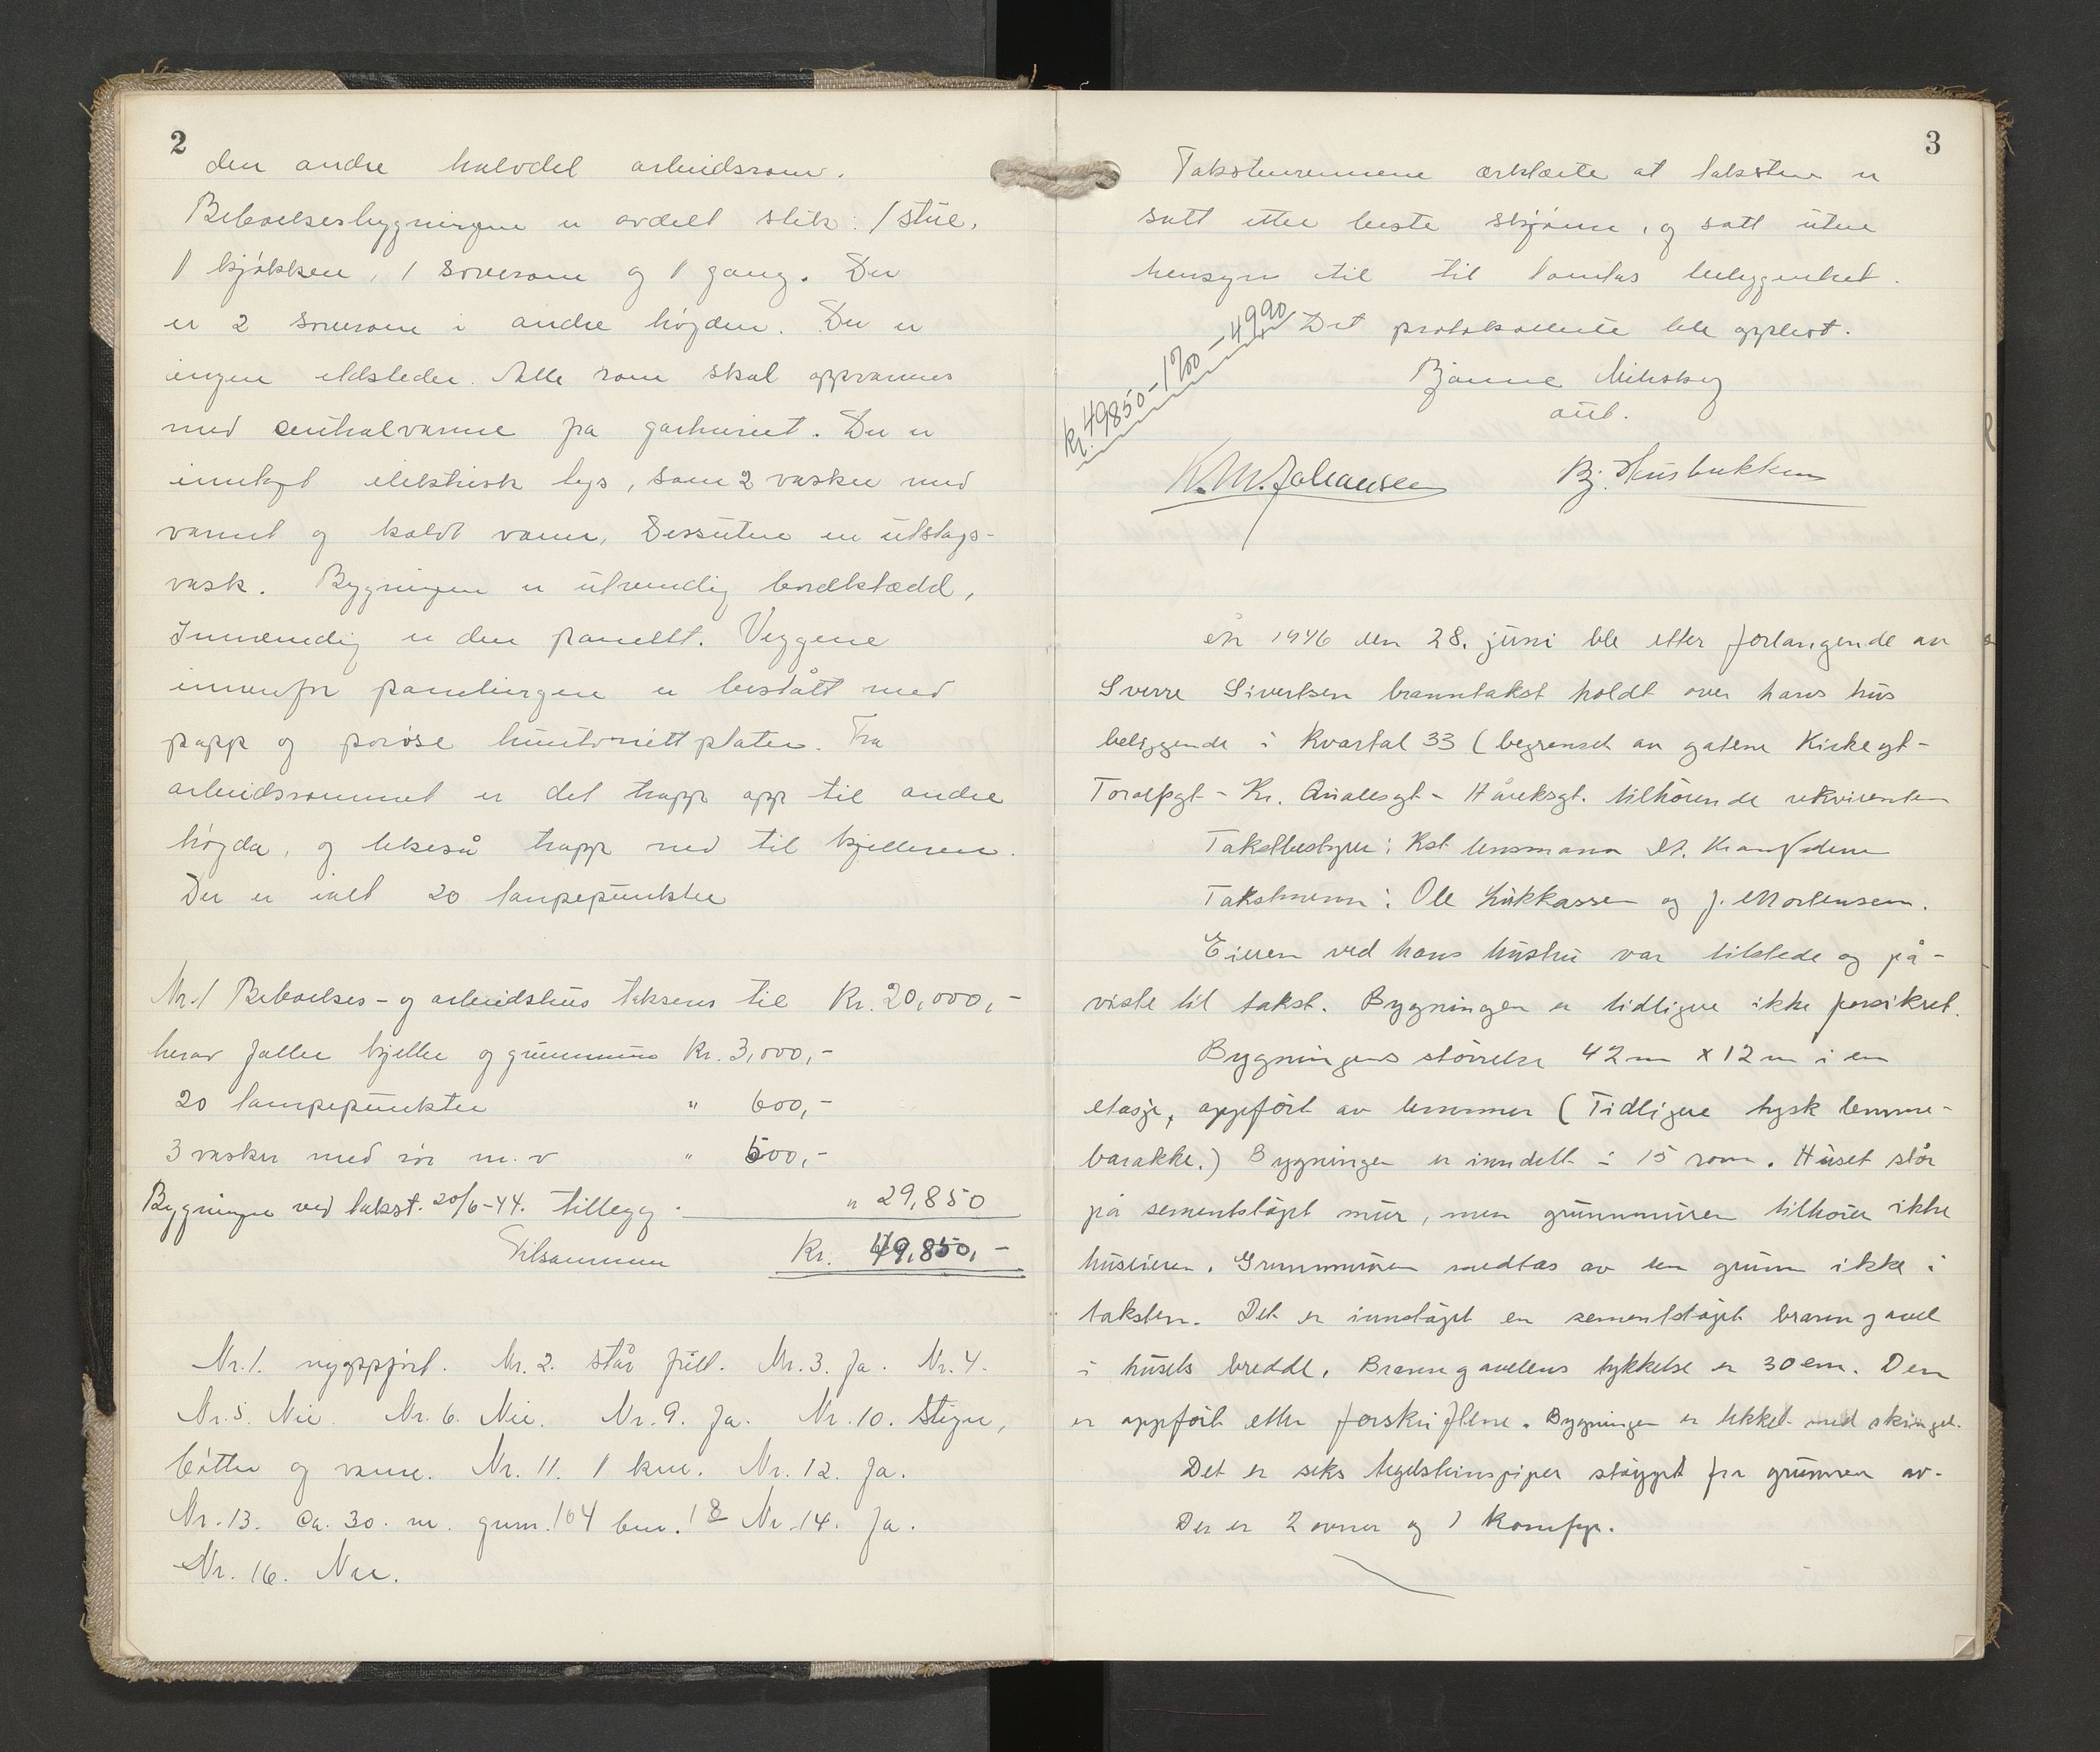 2
den andre halvdel arbeidsrom.
Beboelsesbygningen er avdelt slik: 1 stue,
1 kjøkken, 1 soverom og 1 gang. Der
er 2 soverom i andre høgden. Der er
ingen ildsteder. Alle rom skal oppvarmes
med sentralvarme fra garhuset. Der er
innlagt elektrisk lys, samt 2 vasker med
varmt og koldt vann, Dessuten en utslags-
vask. Bygningen er utvendig bordklædd,
Innvendig er den panelt. Veggene
innenfor panelingen er beslått med
papp og porøse huntonittplater. Fra
arbeidsrommet er det trapp opp til andre
høgda, og likeså trapp ned til kjelleren.
Der er ialt 20 lampepunkter
Nr. 1 Beboelses- og arbeidshus takseres til Kr. 20,000,-
herav faller kjeller og grunnmur Kr. 3,000,-
20 lampepunkter " 600,-
3 vasker med rør m.v " 500,-
Bygningen ved takst. 20/6-44. tillegg. " 29,850
Tilsammen Kr. 49,850,-
Nr. 1. nyoppført. Nr. 2. står fritt. Nr. 3. Ja. Nr. 4.
Nr. 5. Nei. Nr. 6. Nei. Nr. 9. Ja. Nr. 10. Stiger,
bøtter og vann. Nr. 11. 1 km. Nr. 12. Ja.
Nr. 13. Ca. 30. m. 104 18 Nr. 14. Ja.
Nr. 16. Nei.
3
Takstmennene ærklærte at taksten er
satt etter beste skjønn, og satt uten
hensyn til til tomtas beliggenhet.
Det protokollerte ble opplest.
Kr. 49850 - 1%00 - 49.90
Bjarne
aut.
K. M. Johansen Bj. Husbukken
År 1946 den 28. juni ble etter forlangende av
Sverre Sivertsen branntakst holdt over hans hus
beliggende i kvartal 33 (begrenset av gatene Kirkegt-
Toralfsgt - Kr. Qualesgt - Håreksgt. tilhørende rekvirenten
Takstbestyrer: Kst lensmann
Takstmenn: Ole Lukkassen og J. Mortensen.
Eieren ved hans hustru var tilstede og på-
viste til takst. Bygningen er tidligere ikke forsikret.
Bygningens størrelse 42 m x 12 m i en
etasje, oppført av lemmer (Tidligere tysk lemme-
barakke.) Bygningen er inndelt i 15 rom. Huset står
på sementstøpt mur, men grunnmuren tilhører ikke
huseieren. Grunnmuren medtas av den grunn ikke i
taksten. Det er innstøpt en sementstøpt branngavl
i husets bredde. Branngavlens tykkelse er 30 cm. Den
er oppført etter forskriftene. Bygningen er tekket med skingel.
Det er seks teglsteinspiper støypt fra grunnen av.
Der er 2 ovner og 1 komfyr.